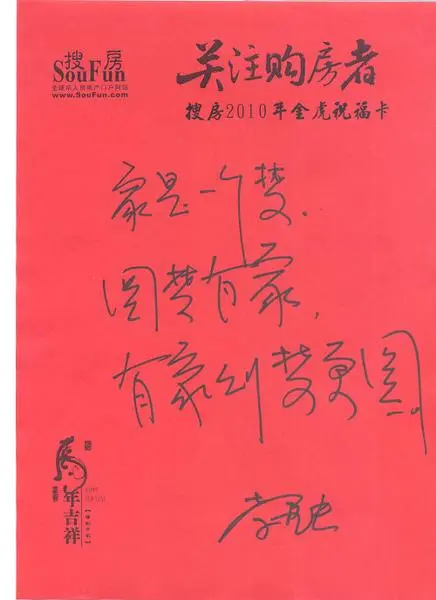 搜房
SouFun
www.SouFun.com
关注购房者
搜房2010年金虎祝福卡
家是一个梦.
圆梦有家,
有家梦更圆。
年吉祥